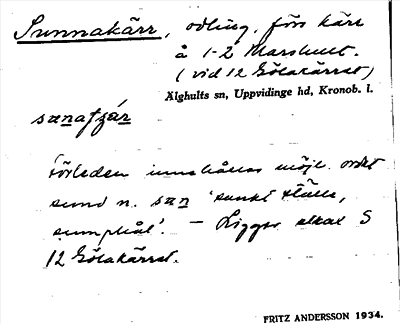 Sunnakärr, odling, förr kärr
å 1-2 Marshult.
(vid 12 Götakärret)
Älghults sn, Uppvidinge hd, Kronob. l.
Förleden innehåller möjl. ordet
sund n. 'sankt ställe,
sumphål'. – Ligger alldel S
12 Götakärret.
FRITZ ANDERSSON 1934.